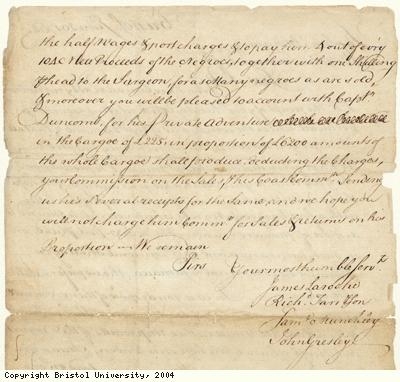 the half Wages & port charges & to pay him 4 out of every
104 New Proceeds of the Negroes, together with one Shilling
⅌ head to the Surgeon, for as Many negroes as are sold,
& moreover you will be pleased to account with Capt.
Duncomb for his Private Adventure
in the Cargoe of £225: in proportion of £6200 amounts of
the whole Cargoe shall produce, deducting the Charges,
your Commission on the Sales, & his Coast Commn. Sending
us his Several receipts for the Same, and we hope you
will not charge him Commn. for Sales & returns on his
Proportion — We remain
Sirs Your most humble Servts.
James Laroche
Richd.
Saml. Munckley
John Gresley
Copyright Bristol University, 2004